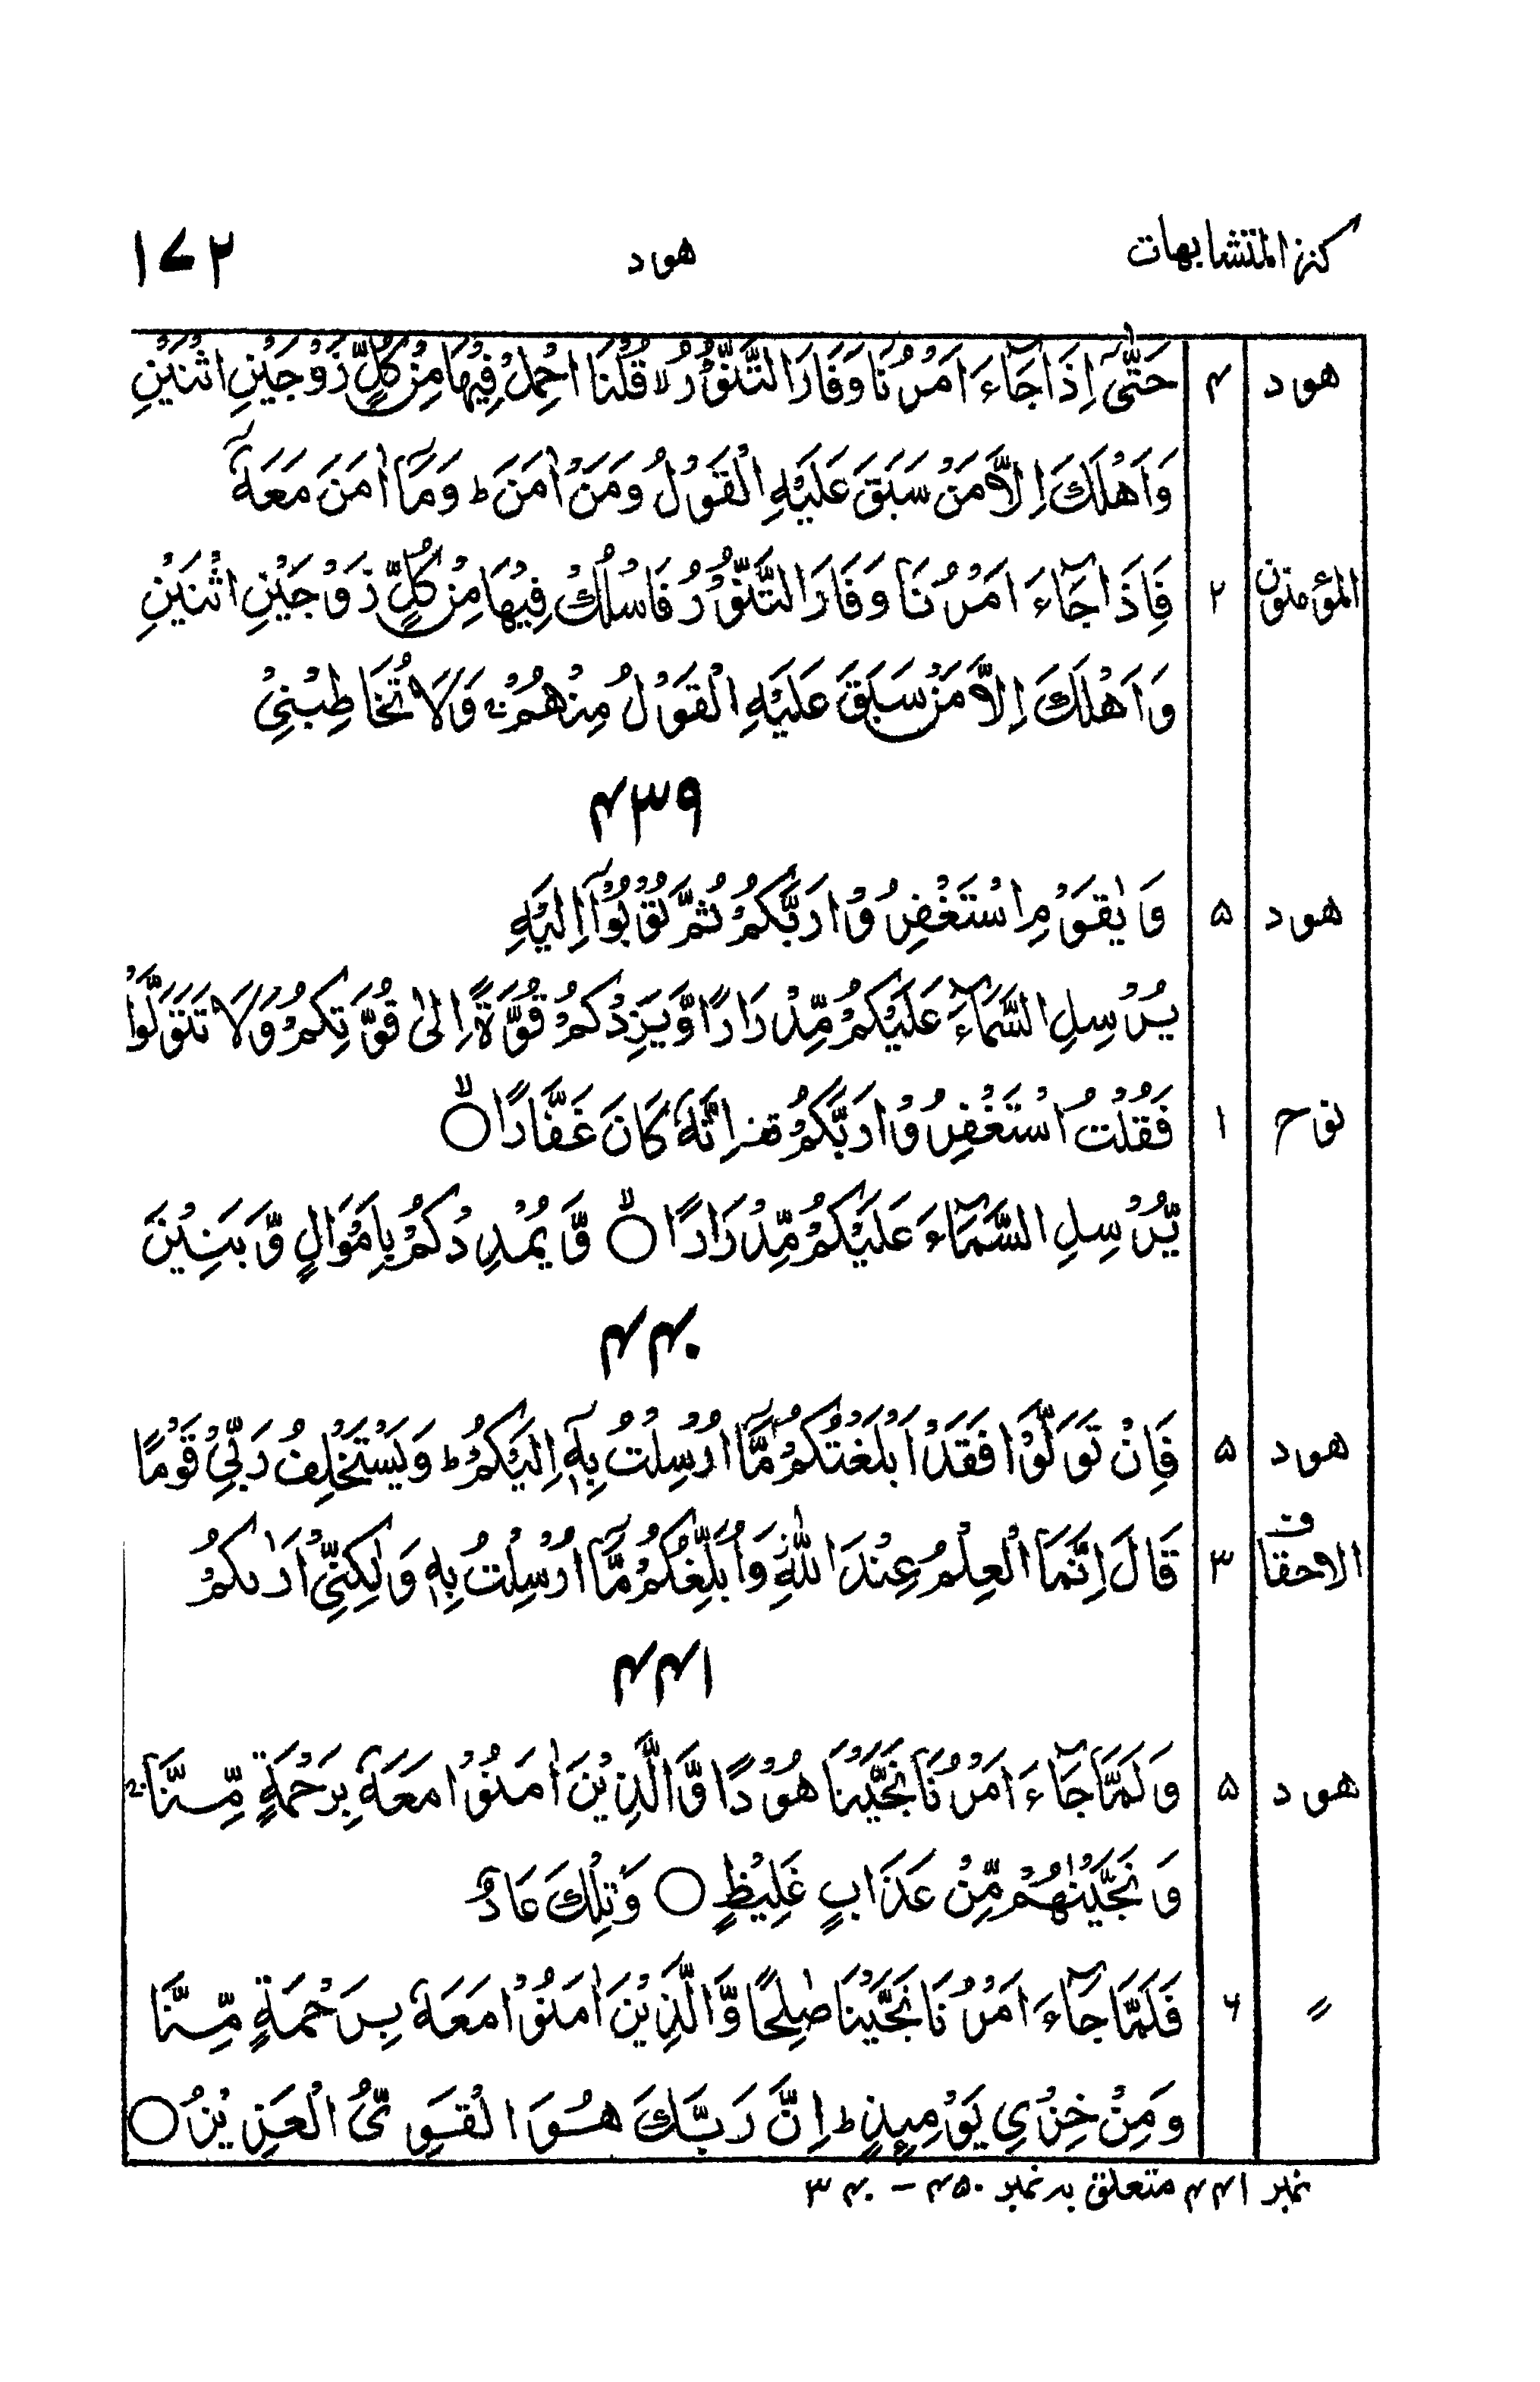 كنز المتشابهات هود ١٧٢
هود ۴ حَتّٰۤى اِذَا جَآءَ اَمْرُنَا وَفَارَ التَّنُّوْرُ ۙ قُلْنَا احْمِلْ فِيْهَا مِنْ كُلٍّ زَوْجَيْنِ اثْنَيْنِ
وَاَهْلَكَ اِلَّا مَنْ سَبَقَ عَلَيْهِ الْقَوْلُ وَمَنْ اٰمَنَ ؕ وَمَاۤ اٰمَنَ مَعَهٗۤ
المؤمنون ٢ فَاِذَا جَآءَ اَمْرُنَا وَفَارَ التَّنُّوْرُ فَاسْلُكْ فِيْهَا مِنْ كُلٍّ زَوْجَيْنِ اثْنَيْنِ
وَاَهْلَكَ اِلَّا مَنْ سَبَقَ عَلَيْهِ الْقَوْلُ مِنْهُمْ ۚ وَلَا تُخَاطِبْنِيْ
۴٣٩
هود ۵ وَيٰقَوْمِ اسْتَغْفِرُوْا رَبَّكُمْ ثُمَّ تُوْبُوْۤا اِلَيْهِ
يُرْسِلِ السَّمَآءَ عَلَيْكُمْ مِّدْرَارًا وَّيَزِدْكُمْ قُوَّةً اِلٰى قُوَّتِكُمْ وَلَا تَتَوَلَّوْا
نوح ١ فَقُلْتُ اسْتَغْفِرُوْا رَبَّكُمْ ۫ اِنَّهٗ كَانَ غَفَّارًا ۙ○
يُّرْسِلِ السَّمَآءَ عَلَيْكُمْ مِّدْرَارًا ۙ○ وَّيُمْدِدْكُمْ بِاَمْوَالٍ وَّبَنِيْنَ
۴۴۰
هود ۵ فَاِنْ تَوَلَّوْا فَقَدْ اَبْلَغْتُكُمْ مَّاۤ اُرْسِلْتُ بِهٖۤ اِلَيْكُمْ ؕ وَيَسْتَخْلِفُ رَبِّيْ قَوْمًا
الاحقاف ٣ قَالَ اِنَّمَا الْعِلْمُ عِنْدَ اللّٰهِ ۖ وَاُبَلِّغُكُمْ مَّاۤ اُرْسِلْتُ بِهٖ وَلٰكِنِّيْۤ اَرٰىكُمْ
۴۴١
هود ۵ وَلَمَّا جَآءَ اَمْرُنَا نَجَّيْنَا هُوْدًا وَّالَّذِيْنَ اٰمَنُوْا مَعَهٗ بِرَحْمَةٍ مِّنَّا ۚ
وَنَجَّيْنٰهُمْ مِّنْ عَذَابٍ غَلِيْظٍ ○ وَتِلْكَ عَادٌ
〃 ۶ فَلَمَّا جَآءَ اَمْرُنَا نَجَّيْنَا صٰلِحًا وَّالَّذِيْنَ اٰمَنُوْا مَعَهٗ بِرَحْمَةٍ مِّنَّا
وَمِنْ خِزْيِ يَوْمِئِذٍ ؕ اِنَّ رَبَّكَ هُوَ الْقَوِيُّ الْعَزِيْزُ ○
نمبر ۴۴١ متعلق بہ نمبر ۴۵۰ - ٣۴۰